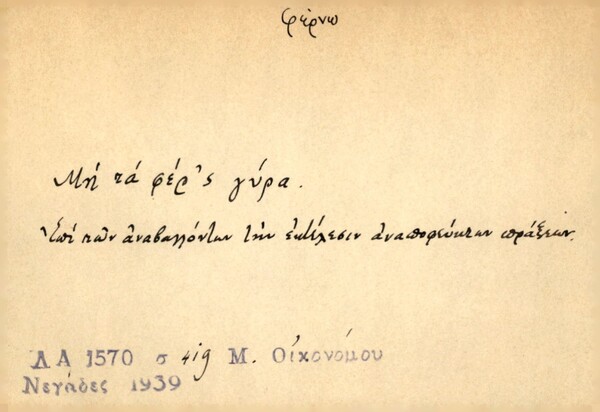 φέρνω
Μή τά φέρ'ς γύρα.
Ἐπί τῶν ἀναβαλλόντων τήν ἐκτέλεσιν ἀναποφεύκτων πράξεων.
ΛΑ 1570 σ 419 Μ. Οἰκονόμου
Νεγάδες 1939